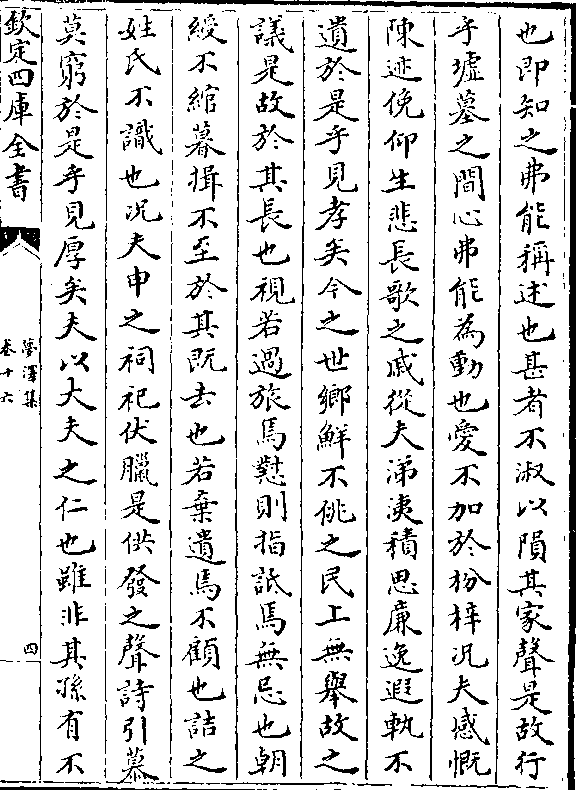 也即知之弗能稱述也甚者不淑以隕其家聲是故行
乎墟墓之間心弗能為動也愛不加於枌梓况夫感慨
陳迹俛仰生悲長歌之戚從夫涕洟積思廉逸遐軌不
遺於是乎見孝矣今之世鄉鮮不佻之民上無舉故之
議是故於其長也視若過旅焉懟則指詆焉無忌也朝
綬不綰暮揖不至於其既去也若棄遺焉不顧也詰之
姓氏不識也况夫申之祠祀伏臘是供發之聲詩引慕
莫窮於是乎見厚矣夫以大夫之仁也雖非其孫有不
欽定四庫全書
夢澤集
卷十六
四